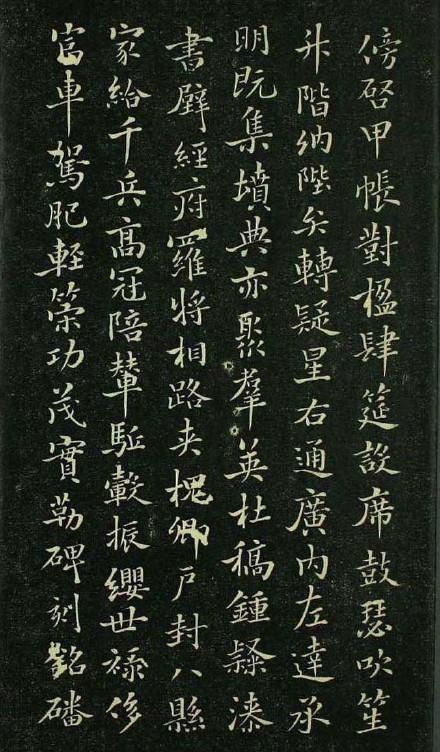 傍启甲帳對楹肆筵設席鼓瑟吹笙
升階納陛矣轉疑星右通廣内左達承
明既集墳典亦聚羣英杜稿鍾隸漆
書壁經府羅將相路夾槐卿戶封八縣
家給千兵高冠陪輦駈轂振纓世祿侈
富車駕肥軽策功茂實勒碑刻銘磻